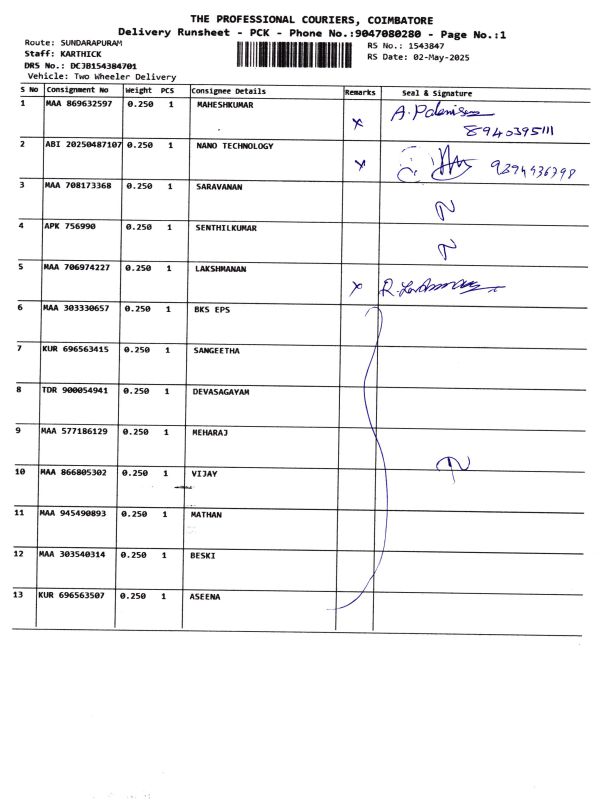 THE PROFESSIONAL COURIERS, COIMBATORE
Delivery Runsheet - PCK - Phone No.:9047080280 - Page No.:1
Route: SUNDARAPURAM
Staff: KARTHICK
DRS No.: DCJB154384701
Vehicle: Two Wheeler Delivery
RS No.: 1543847
RS Date: 02-May-2025
S No Consignment No Weight PCS Consignee Details Remarks Seal & Signature
1 MAA 869632597 0.250 1 MAHESHKUMAR x
8940395111
2 ABI 20250487107 0.250 1 NANO TECHNOLOGY x
3 MAA 708173368 0.250 1 SARAVANAN N
4 APK 756990 0.250 1 SENTHILKUMAR N
5 MAA 706974227 0.250 1 LAKSHMANAN x
6 MAA 303330657 0.250 1 BKS EPS
7 KUR 696563415 0.250 1 SANGEETHA
8 TDR 900054941 0.250 1 DEVASAGAYAM
9 MAA 577186129 0.250 1 MEHARAJ N
10 MAA 866805302 0.250 1 VIJAY
11 MAA 945490893 0.250 1 MATHAN
12 MAA 303540314 0.250 1 BESKI
13 KUR 696563507 0.250 1 ASEENA